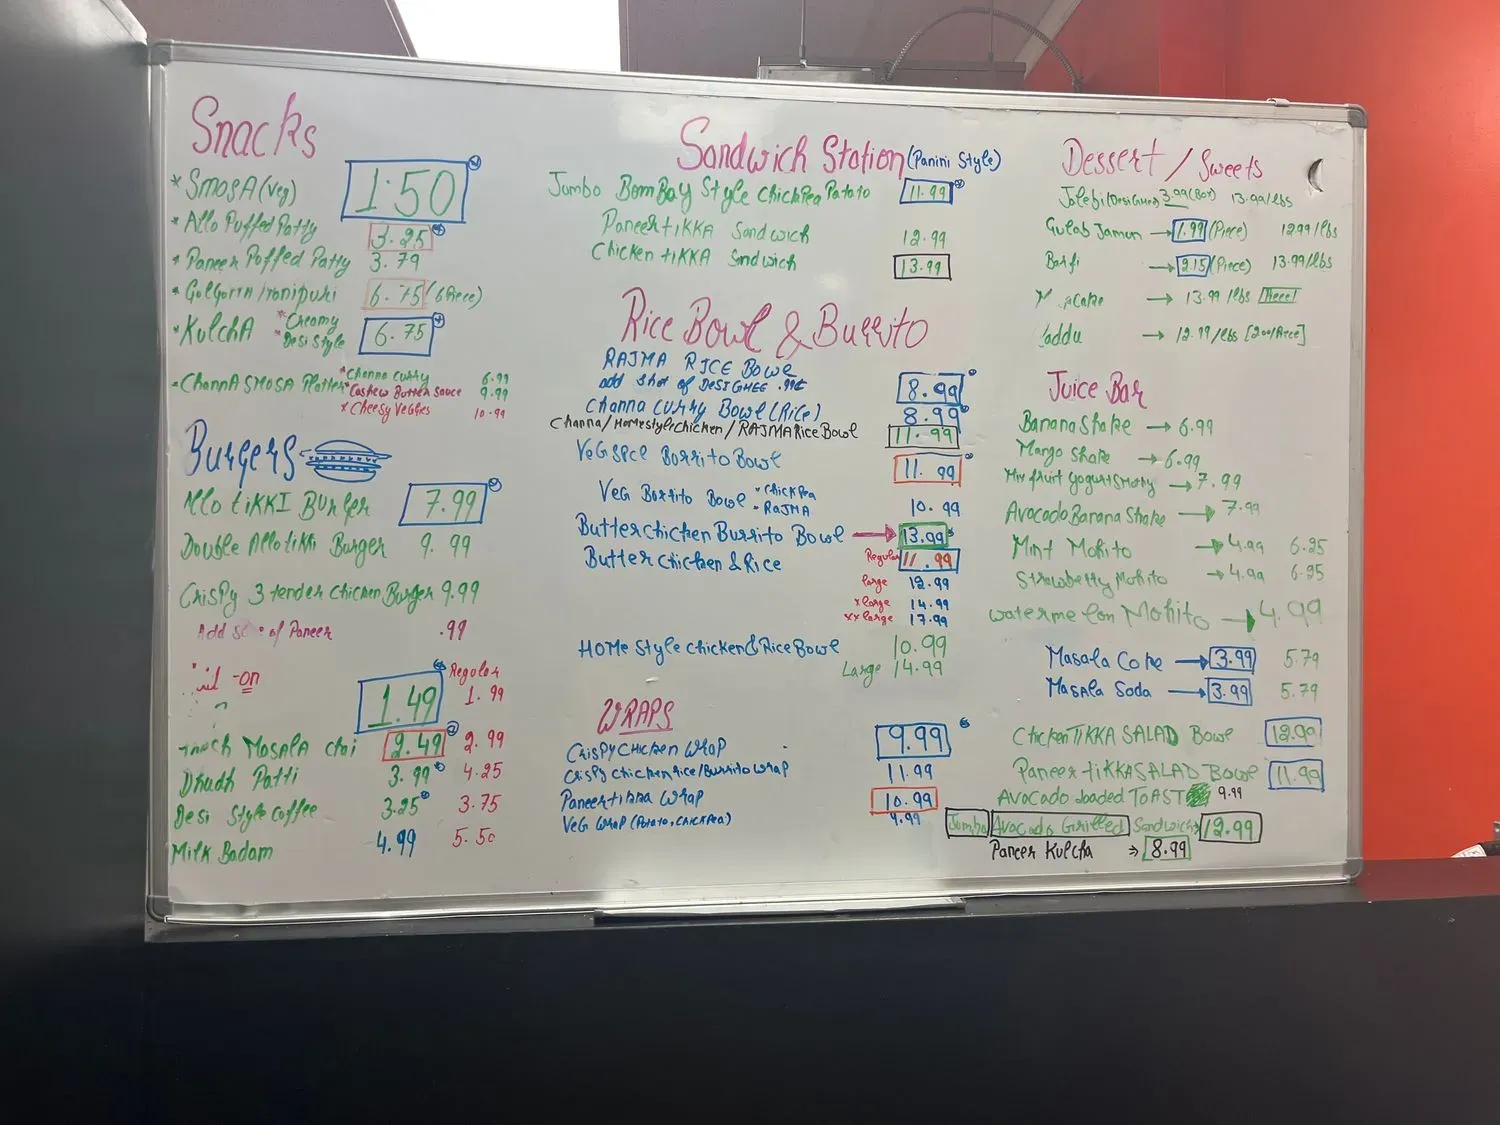 Snacks
* SMOSA (Veg) 1.50
* Allo Puffed Patty 3.25
* Paneer Puffed Patty 3.79
* GolGappa /Panipuri 6.75 (6 Piece)
* KulchA * Creamy * Desi Style 6.75
* ChannA SMOSA Platter * Channa Curry 6.99
* Cashew Butter Sauce 9.99
* Cheesy Veggies 10.99
Burgers
Allo tiKKI BURger 7.99
Double Allo tikki Burger 9.99
Crispy 3 tender Chicken Burger 9.99
Add of Paneer .99
-on
Regular
1.49 1.99
Masala Chai 2.49 2.99
Dhudh Patti 3.99 4.25
Desi Style Coffee 3.25 3.75
Milk Badam 4.99 5.50
Sandwich Station (Panini Style)
Jumbo BomBay Style ChickPea Potato 11.99
Paneer tiKKA Sandwich 12.99
Chicken tiKKA Sandwich 13.99
Rice Bowl & Burrito
RAJMA RICE Bowl 8.99
add Shot of DESI GHEE .99¢
Channa Curry Bowl (Rice) 8.99
Channa/Homestyle Chicken/RAJMA Rice Bowl 11.99
VeG Burrito Bowl 11.99
VeG Burrito Bowl * ChickPea * RAJMA 10.99
Butter Chicken Burrito Bowl → 13.99
Butter Chicken & Rice Regular 11.99
large 12.99
x large 14.99
xx large 17.99
HOMe Style Chicken & Rice Bowl 10.99
Large 14.99
WRAPS
CrisPy CHicken WraP 9.99
CrisPy Chicken Rice/Burrito Wrap 11.99
Paneer tikka Wrap 10.99
VeG WraP (Potato, ChickPea) 9.99
Dessert / Sweets
Jalebi (Desi Ghee) 3.99 (Box) 13.99/lbs
Gulab Jamun → 1.99 (Piece) 12.99/lbs
Barfi → 2.15 (Piece) 13.99/lbs
Cake → 13.99 /lbs
laddu → 12.99/lbs [2.00/Piece]
Juice Bar
Banana Shake → 6.99
Mango Shake → 6.99
Mix fruit yogurt Smoty → 7.99
Avocado Banana Shake → 7.99
Mint Mohito → 4.99 6.25
Strawberry Mohito → 4.99 6.25
watermelon Mohito → 4.99
Masala Coke → 3.99 5.79
Masala Soda → 3.99 5.79
Chicken TIKKA SALAD Bowl 12.99
Paneer tiKKA SALAD Bowl 11.99
Avocado Loaded ToAST 9.99
Jumbo Avocado Grilled Sandwich → 12.99
Paneer Kulcha → 8.99